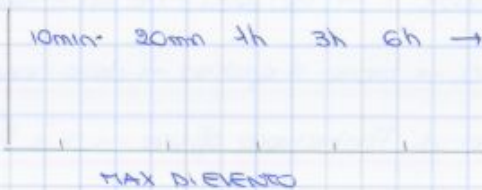 10min. 20mn 1h 3h 6h →
MAX DI EVENTO